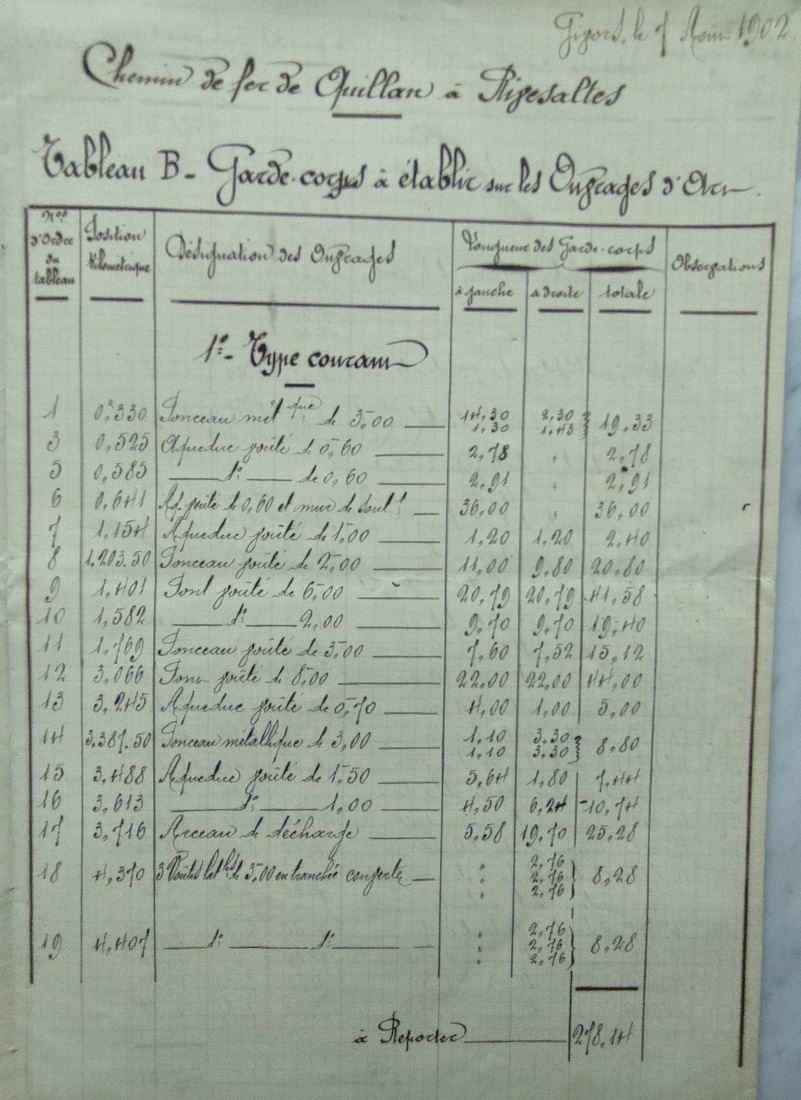 Gisors, le 7 Aout 1902
Chemin de fer de Quillan à Rivesaltes
Tableau B - Garde-corps à établir sur les Ouvrages d'Art
Nos d'Ordre du tableau Position kilométrique Désignation des Ouvrages Longueur des Garde-corps Observations
à gauche à droite totale
1° - Type courant
1 0k330 Ponceau métque de 3,00 14,30 2,30 } 19,33
1,30 1,43
3 0,525 Aqueduc voûté de 0,60 2,78 " 2,78
5 0,585 d° de 0,60 2,91 " 2,91
6 0,641 Aq. voûté de 0,60 et mur de soutt 36,00 " 36,00
7 1,154 Aqueduc voûté de 1,00 1,20 1,20 2,40
8 1,203.50 Ponceau voûté de 2,00 11,00 9,80 20,80
9 1,401 Pont voûté de 6,00 20,79 20,79 41,58
10 1,582 d° 2,00 9,70 9,70 19,40
11 1,769 Ponceau voûté de 3,00 7,60 7,52 15,12
12 3,066 Pont voûté de 8,00 22,00 22,00 44,00
13 3,245 Aqueduc voûté de 0,70 4,00 1,00 5,00
14 3,387.50 Ponceau métallique de 3,00 1,10 3,30 } 8,80
1,10 3,30
15 3,488 Aqueduc voûté de 1,50 5,64 1,80 7,44
16 3,613 d° 1,00 4,50 6,24 10,74
17 3,716 Arceau de décharge 5,58 19,70 25,28
18 4,370 3 Voûtes latles de 3,00 en tranchée couverte " 2,76 } 8,28
" 2,76
" 2,76
19 4,407 d° d° " 2,76 } 8,28
" 2,76
" 2,76
à Reporter 278,14